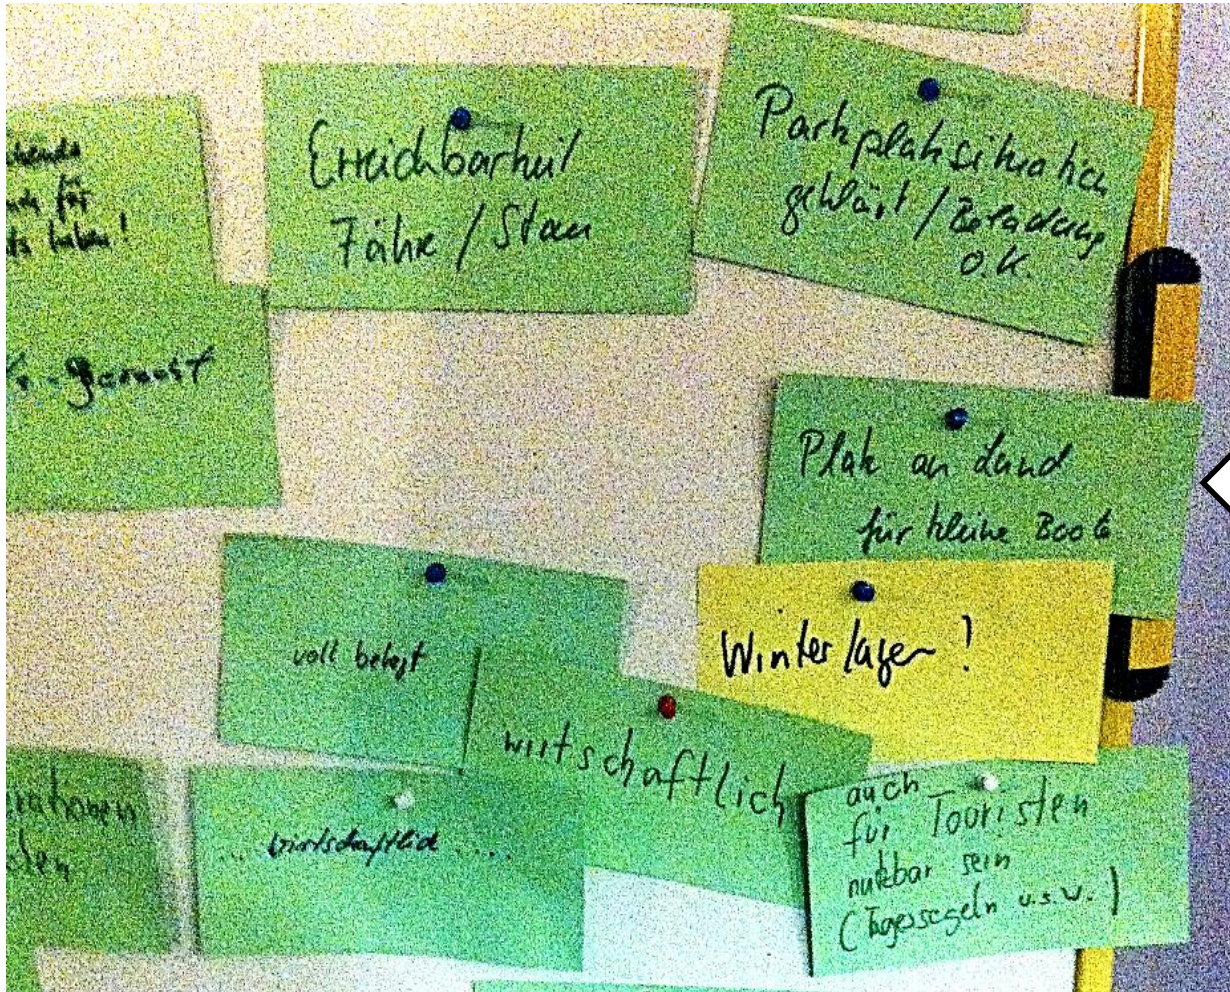 für
haben!
Erreichbarkeit
Fähre / Stau
Parkplatzsituation
geklärt / Beladung
O.K.
Platz an Land
für kleine Boote
voll belegt
Winterlager!
wirtschaftlich
... wirtschaftlich ....
auch
für Touristen
nutzbar sein
(Tagessegeln u.s.w.)